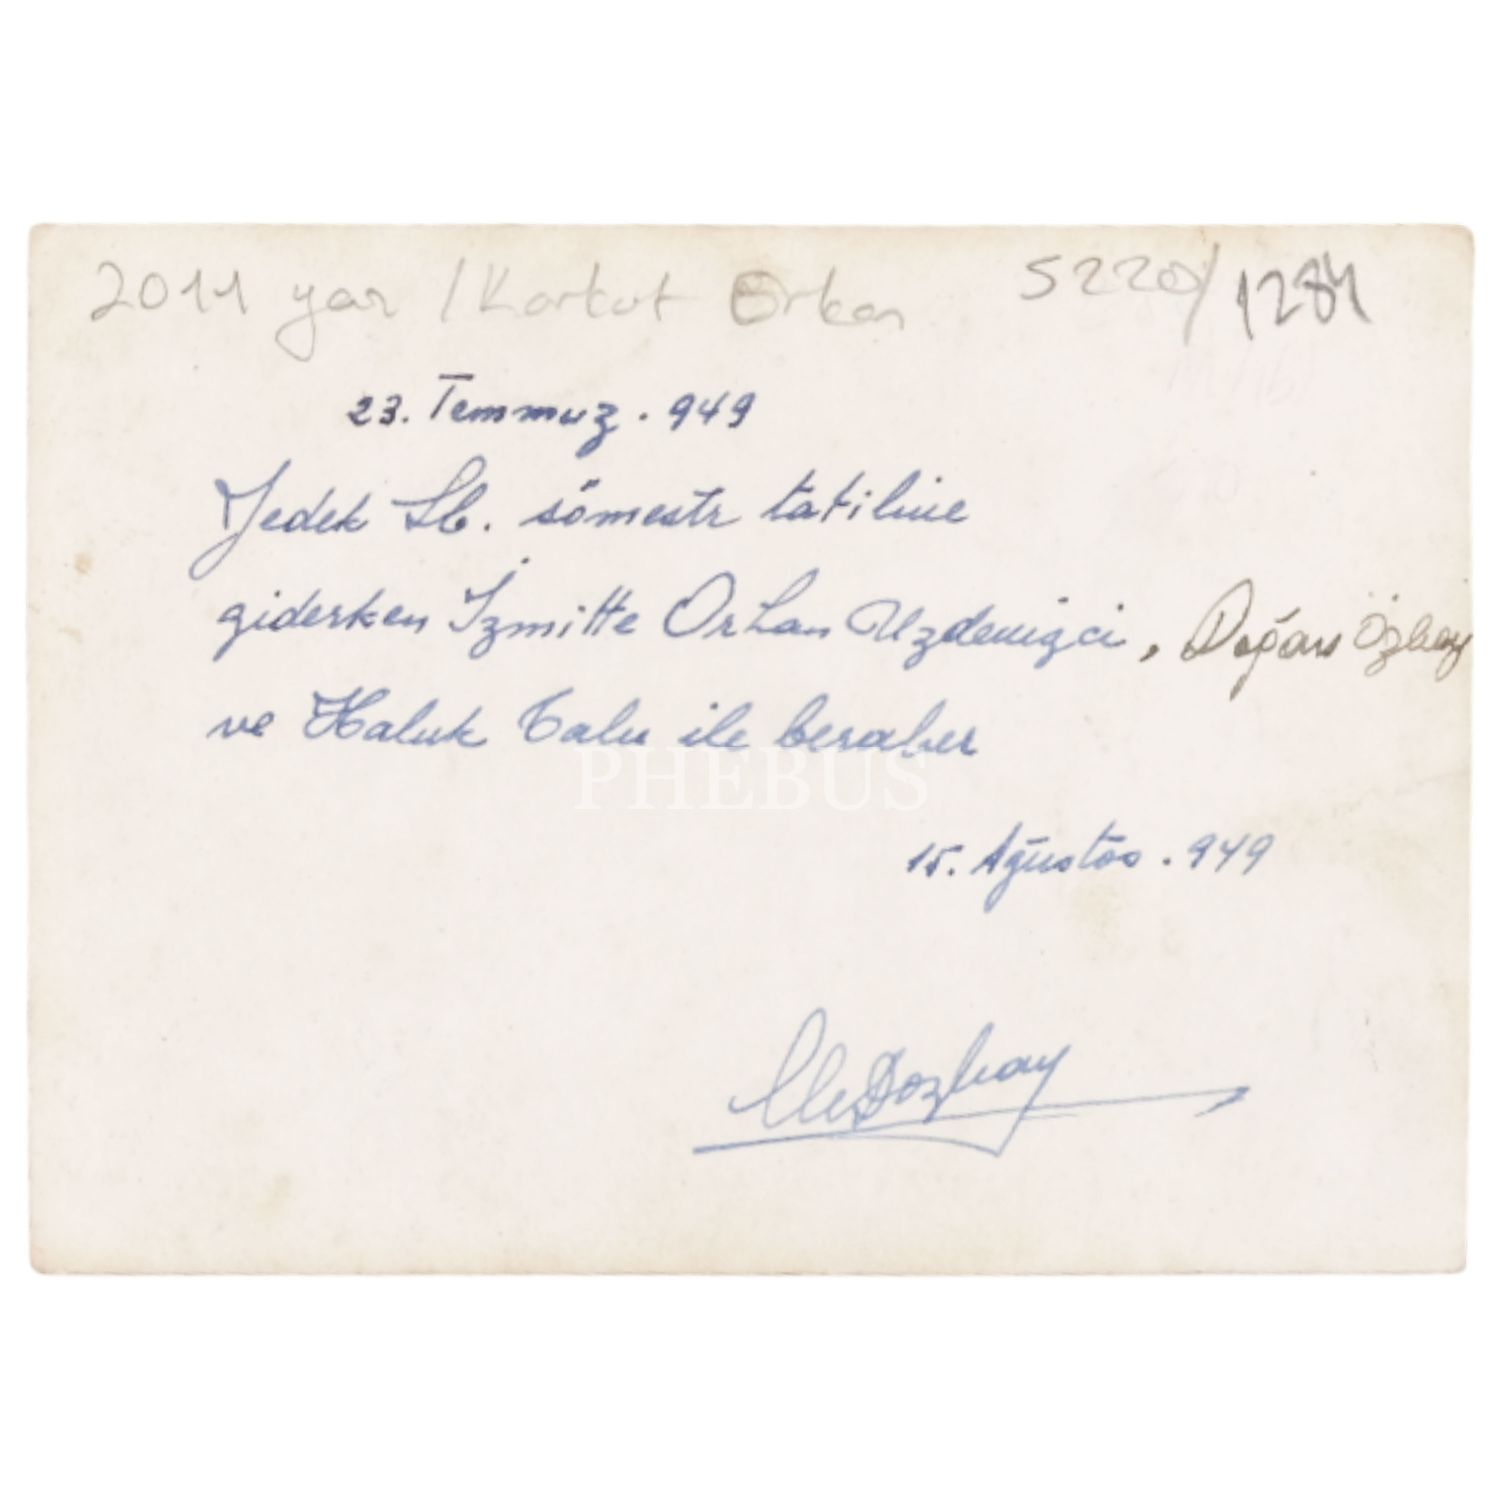 2011 yaz / Korkut Erkan 5220/1284
23. Temmuz . 949
Yedek Sb. sömestr tatiline
giderken İzmitte Orhan Uzdenizci, Doğan Özbay
ve Haluk Talu ile beraber
PHEBUS
15. Ağustos . 949